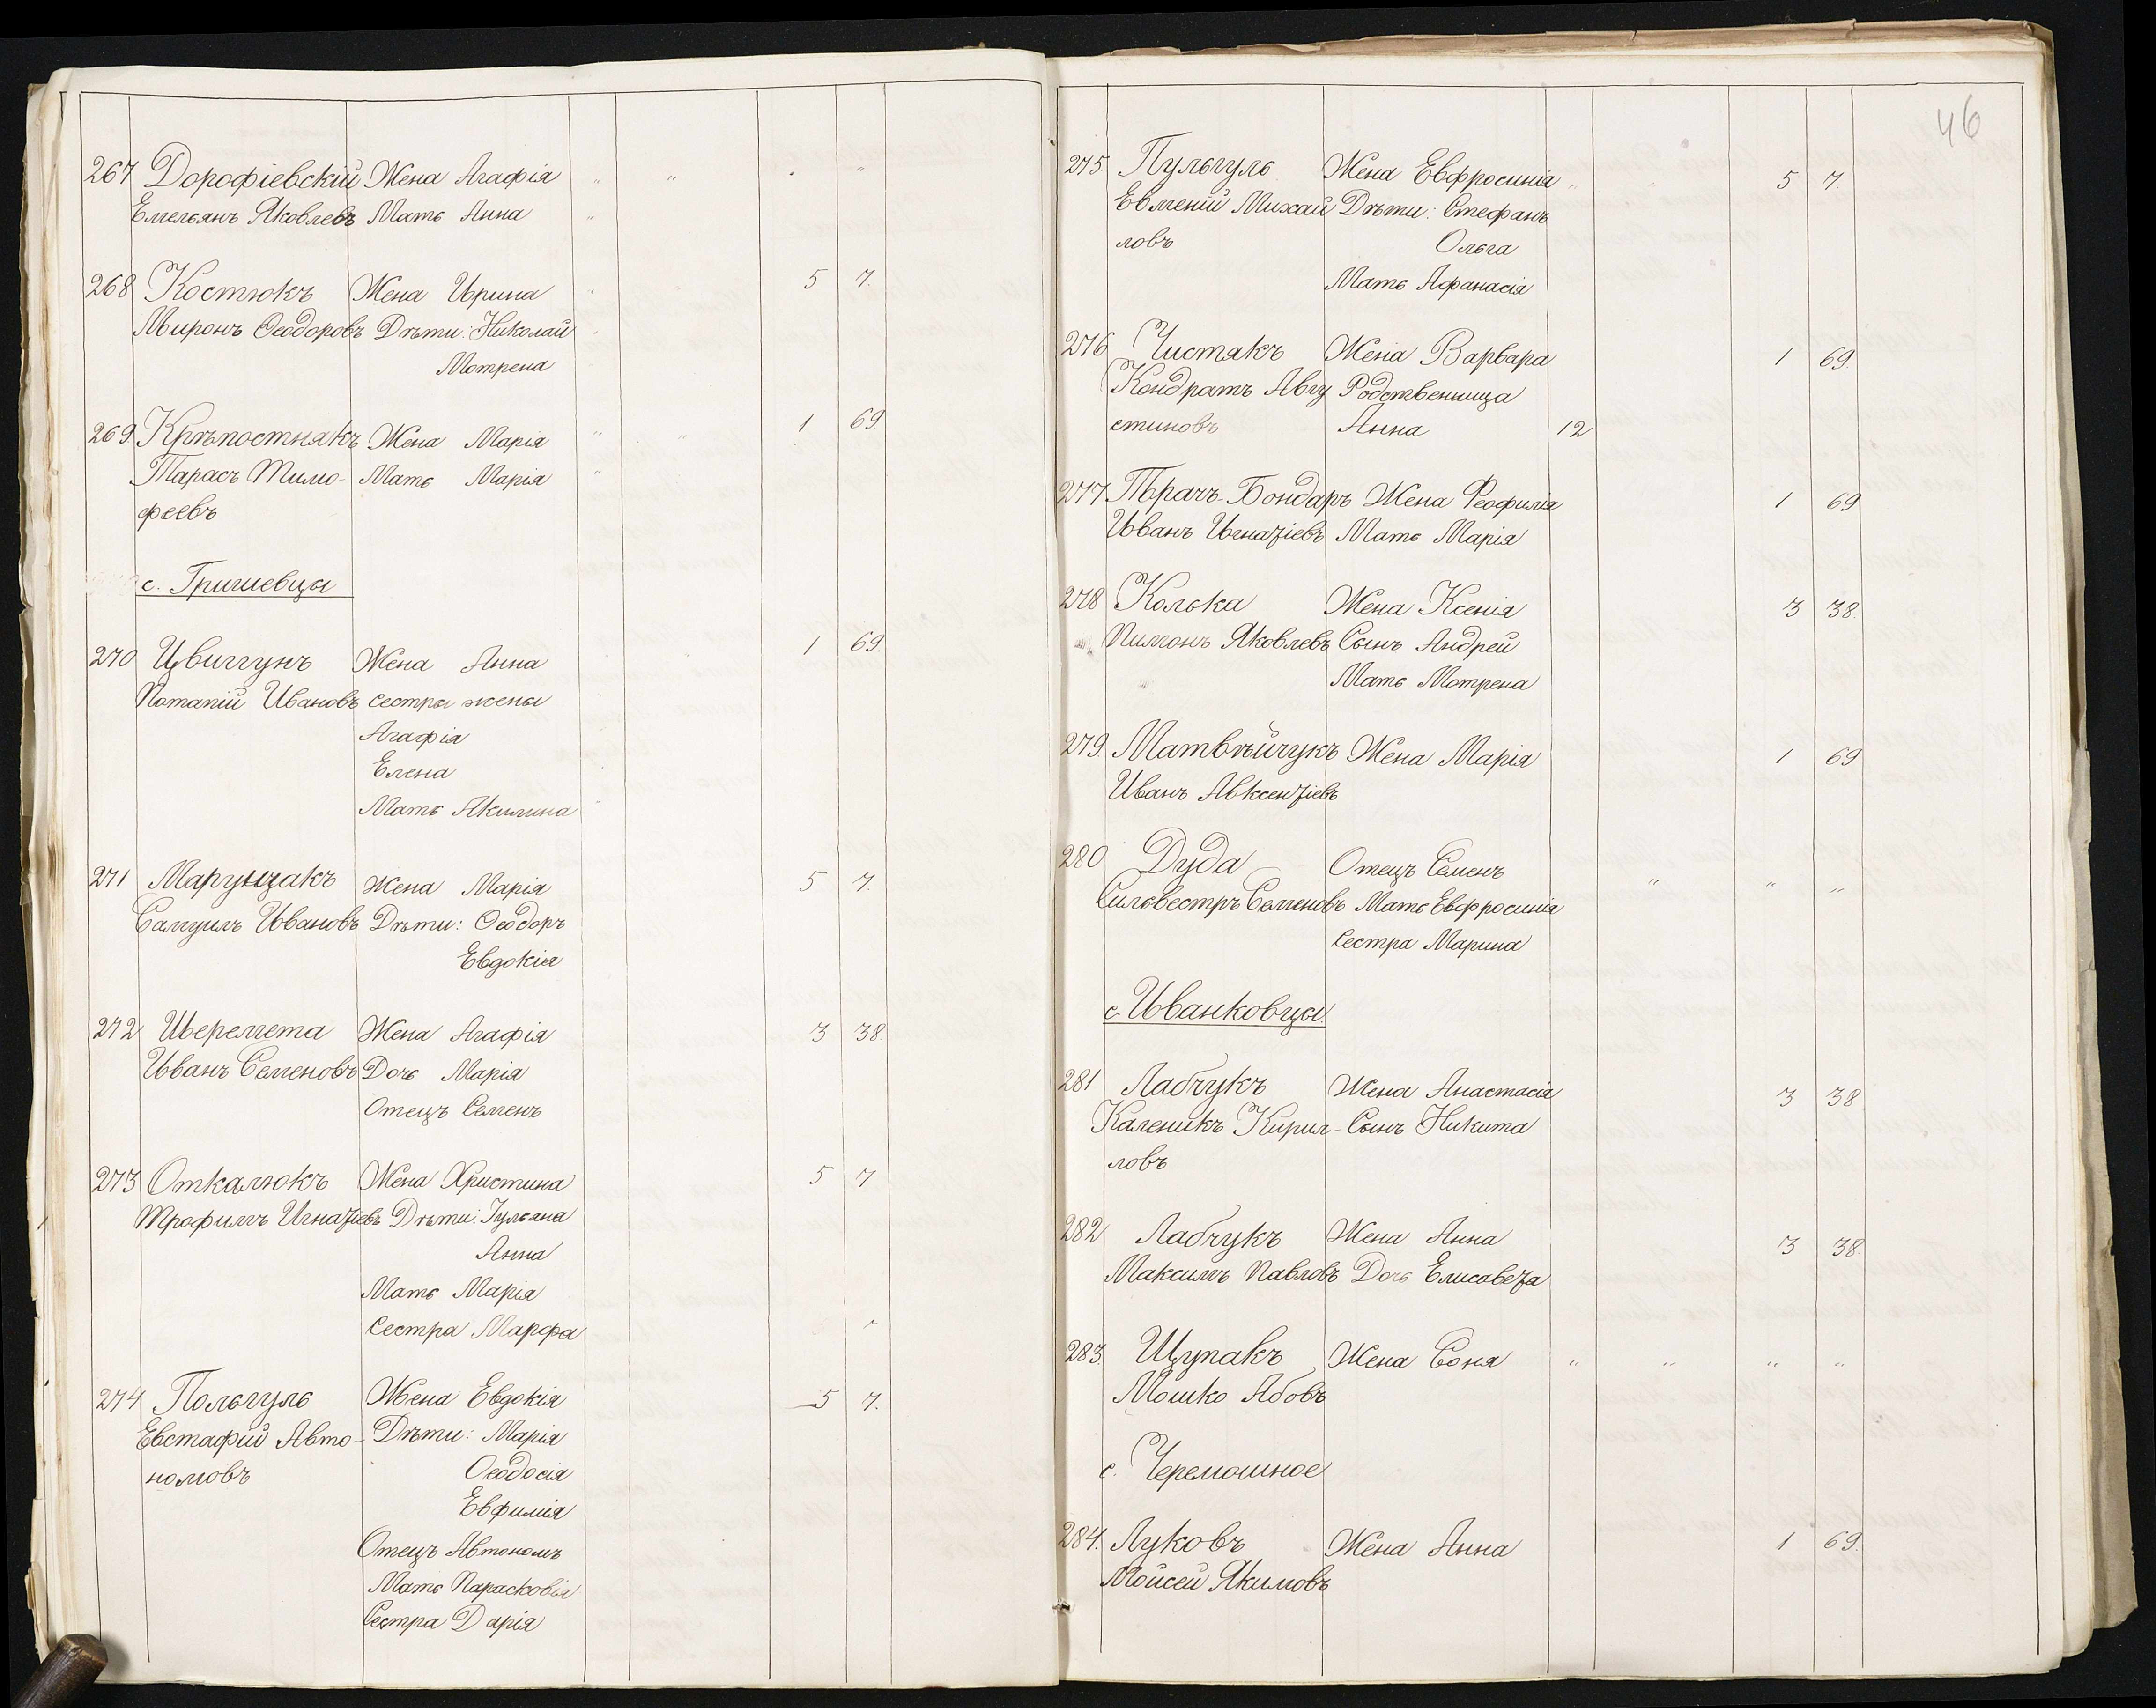 267 Дорофіевскій Жена Агафія " " " "
Емельянъ Яковлевъ Мать Анна "
268 Костюкъ Жена Ирина " 5 7.
Миронъ Ѳеодоровъ Дѣти: Николай
Мотрена
269. Крѣпостнякъ Жена Марія " " 1 69.
Тарасъ Тимо- Мать Марія "
феевъ
с. Гришевцы
270 Цвигунъ Жена Анна 1 69.
Потапій Ивановъ сестры жены
Агафія
Елена
Мать Акилина
271 Марущакъ Жена Марія 5 7.
Самуилъ Ивановъ Дѣти: Ѳеодоръ
Евдокія
272 Шеремета Жена Агафія 3 38.
Иванъ Семеновъ Дочь Марія
Отецъ Семенъ
273 Откалюкъ Жена Христина 5 7
Трофимъ Игнатіевъ Дѣти: Іульяна
Анна
Мать Марія
Сестра Марфа
274 Польгуль Жена Евдокія 5 7.
Евстафій Авто- Дѣти: Марія
номовъ Ѳеодосія
Евфимія
Отецъ Автономъ
Мать Парасковія
Сестра Дарія
46
275. Пульгуль Жена Евфросинія " 5 7.
Евменій Михай Дѣти: Стефанъ
ловъ Ольга
Мать Афанасія
276 Чистякъ Жена Варвара 1 69.
Кондратъ Авгу Родственница
стиновъ Анна 12
277. Ткачъ-Бондаръ Жена Феофилія 1 69
Иванъ Игнатіевъ Мать Марія
278 Колька Жена Ксенія 3 38.
Пимонъ Яковлевъ Сынъ Андрей
Мать Мотрена
279. Матвѣйчукъ Жена Марія 1 69
Иванъ Авксентіевъ
280 Дуда Отецъ Семенъ " " "
Сильвестръ Семеновъ Мать Евфросинія
Сестра Марина
с. Иванковцы
281 Лабчукъ Жена Анастасія 3 38
Каленикъ Кирил- Сынъ Никита
ловъ
282 Лабчукъ Жена Анна 3 38.
Максимъ Павловъ Дочь Елисавета
283. Щупакъ Жена Соня " " " "
Мошко Абовъ
с. Черемошное
284. Луковъ Жена Анна 1 69.
Мойсей Якимовъ